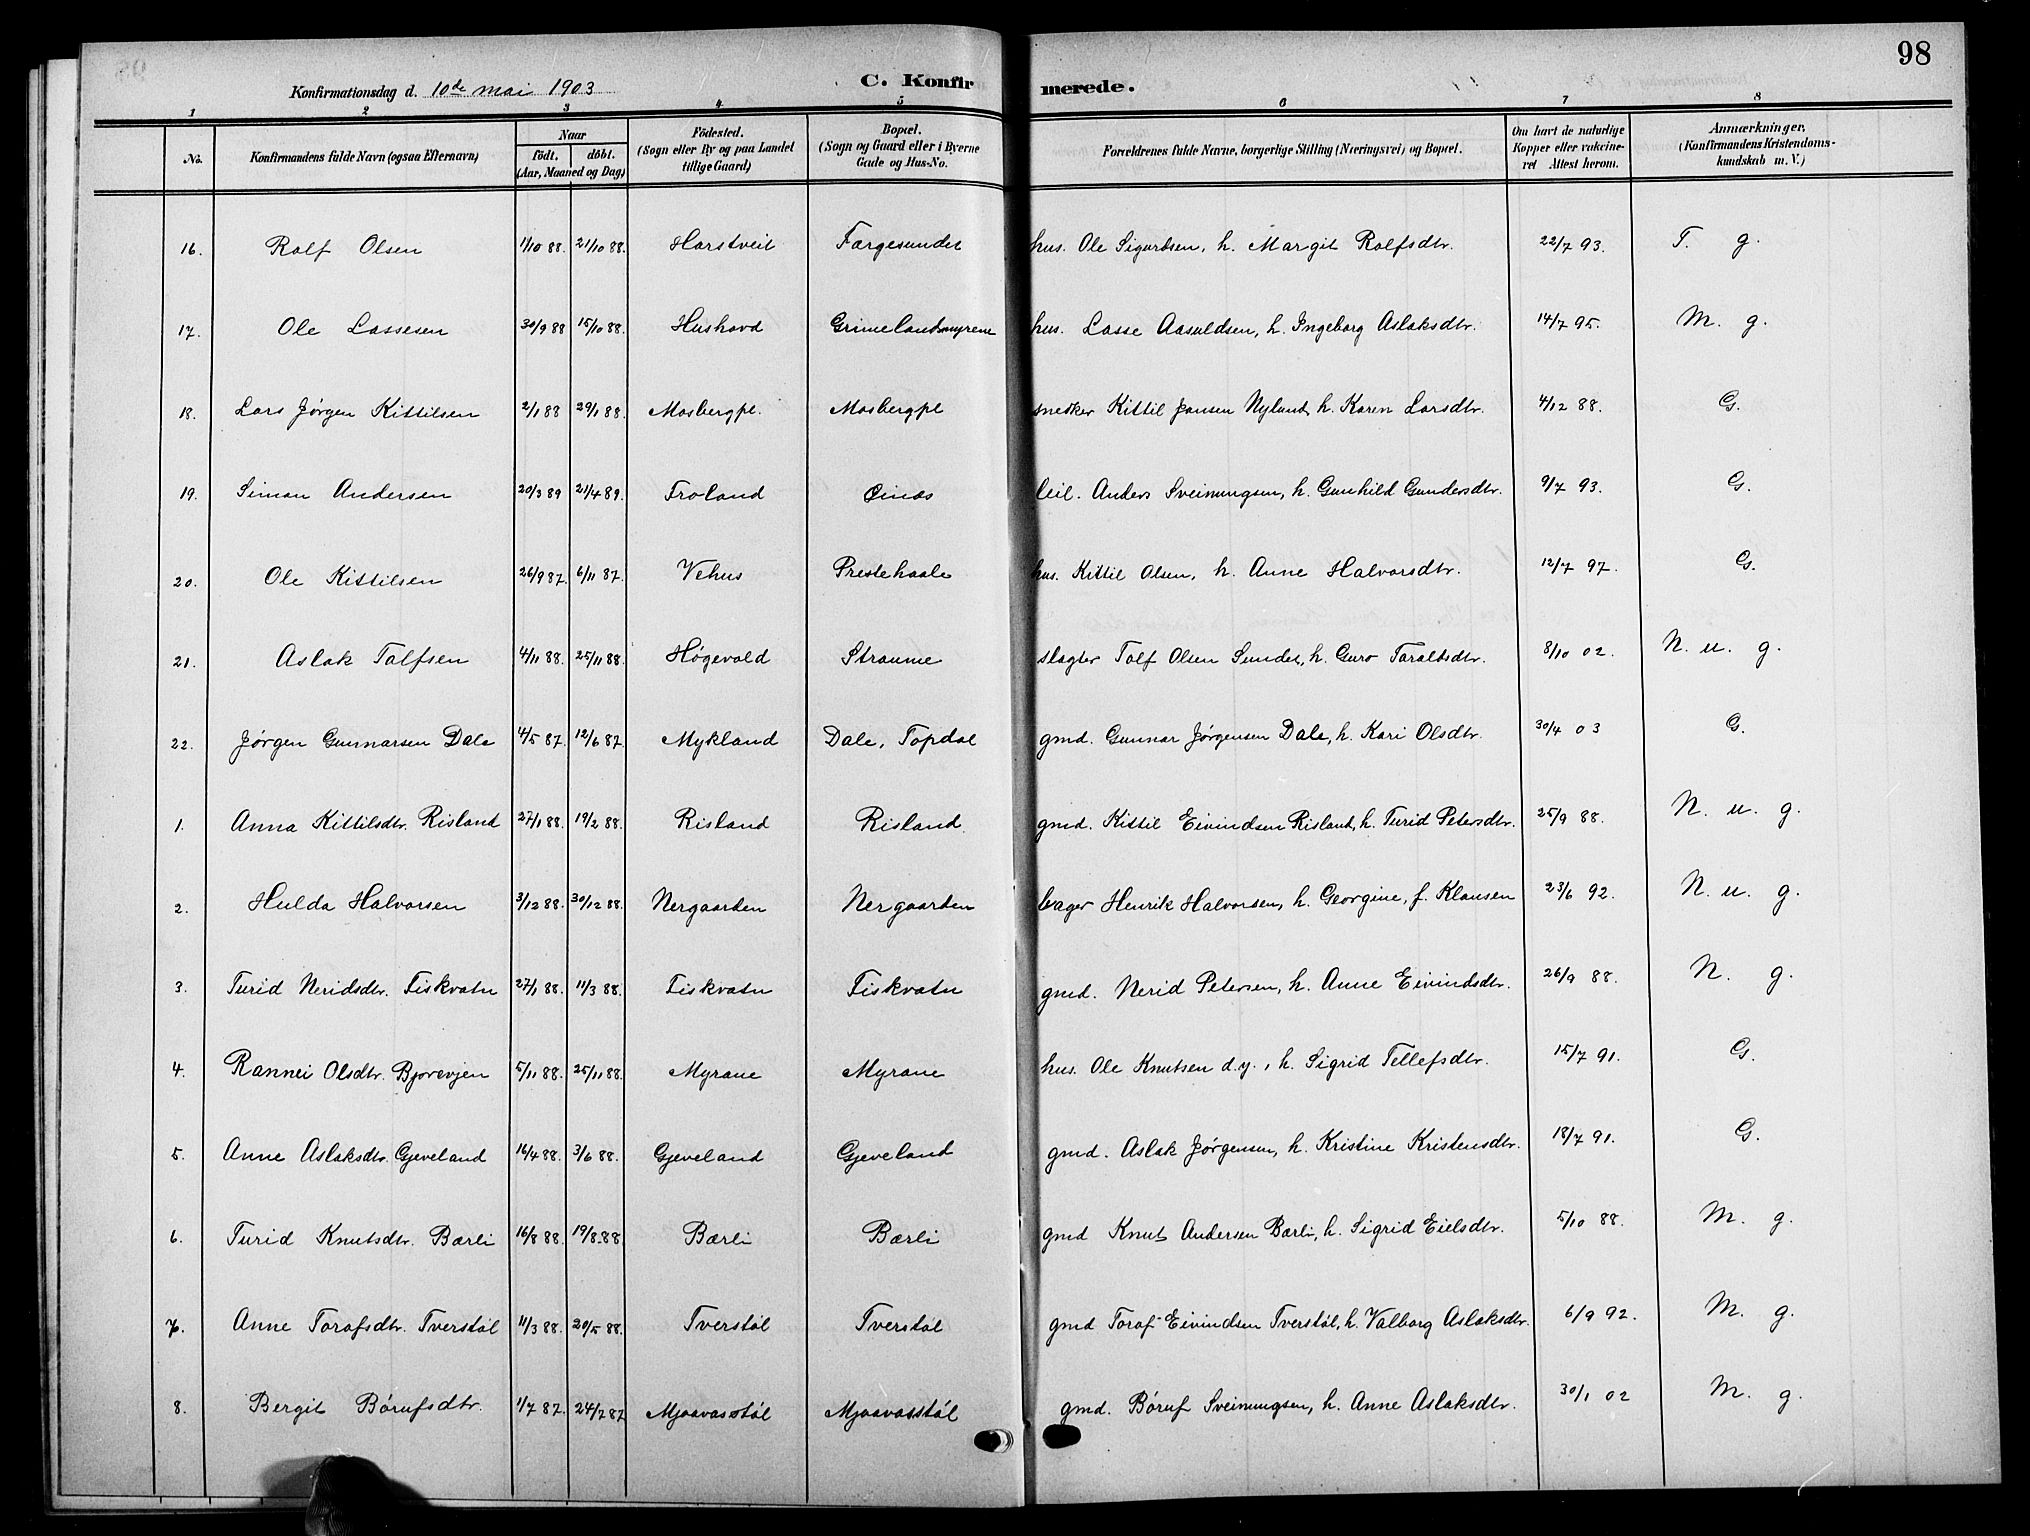 98
Konfirmationsdag d. 10de mai 1903 C. Konfirmerede.
1 2 3 4 5 6 7 8
No. Konfirmandens fulde Navn (ogsaa Efternavn) Naar født. døbt. (Aar, Maaned og Dag) Fødested. (Sogn eller By og paa Landet tillige Gaard) Bopæl. (Sogn og Gaard eller i Byerne Gade og Hus-No. Forældrenes fulde Navne, borgerlige Stilling (Næringsvei) og Bopæl. Om havt de naturlige Kopper eller vaccineret Attest herom. Anmærkninger, (Konfirmandens Kristendomskundskab m. V.)
16. Rolf Olsen 1/10 88. 21/10 88. Harstveit Fargesundet hus. Ole Sigurdsen, h. Margit Rolfsdtr. 22/7 93. T. g.
17. Ole Lassesen 30/9 88 15/10 88. Hushovd Grimelandsmyrene hus. Lasse Aasuldsen, h. Ingeborg Aslaksdtr. 14/7 95. M. g.
18. Lars Jørgen Kittilsen 2/1 88 29/1 88. Mosbergpl. Mosbergpl snedker Kittil Jansen Nyland, h. Karen Larsdtr. 4/12 88. G.
19. Simon Andersen 20/3 89 21/4 89. Froland Øinæs leil. Anders Sveinungsen, h. Gunhild Gundersdtr. 9/7 93. G.
20. Ole Kittilsen 26/9 87. 6/11 87. Vehus Prestehaale hus. Kittil Olsen, h. Anne Halvorsdtr. 12/7 97. G.
21. Aslak Tolfsen 4/11 88. 25/11 88. Høgevold Straume slagter Tolf Olsen Sundet, h. Guro Taraldsdtr. 8/10 02. N. u. g.
22. Jørgen Gunnarsen Dale 4/5 87. 12/6 87. Mykland Dale, Topdal gmd. Gunnar Jørgensen Dale, h. Kari Olsdtr. 30/4 03 G.
1. Anna Kittilsdtr. Risland 27/1 88. 19/2 88. Risland Risland. gmd. Kittil Eivindsen Risland, h. Turid Petersdtr. 25/9 88. N. u. g.
2. Hulda Halvorsen 3/12 88. 30/12 88. Nergaarden Nergaarden bager Henrik Halvorsen, h. Georgine, f. Klausen 23/6 92. N. u. g.
3. Turid Neridsdtr. Fiskvatn 27/1 88. 11/3 88. Fiskvatn Fiskvatn gmd. Nerid Petersen, h. Anne Eivindsdtr. 26/9 88. N. g.
4. Rannei Olsdtr. Bjorevjen 5/11 88. 25/11 88. Myrane Myrane hus. Ole Knutsen d.y., h. Sigrid Tellefsdtr. 15/7 91. G.
5. Anne Aslaksdtr. Gjeveland 16/4 88. 3/6 88. Gjeveland Gjeveland gmd. Aslak Jørgensen, h. Kristine Kristensdtr. 18/7 91. G.
6. Turid Knutsdtr. Bærli 16/8 88. 19/8 88 Bærli Bærli gmd Knut Andersen Bærli, h. Sigrid Eielsdtr. 5/10 88. M. g.
7. Anne Torafsdtr. Tverstøl 11/3 88. 20/5 88. Tverstøl Tverstøl gmd Toraf Eivindsen Tverstøl, h. Valborg Aslaksdtr. 6/9 92. M. g.
8. Bergit Børufsdtr. 1/7 87. 24/7 87 Mjaavasstøl Mjaavasstøl gmd. Børuf Sveinungsen, h. Anne Aslaksdtr. 30/1 02 M. g.